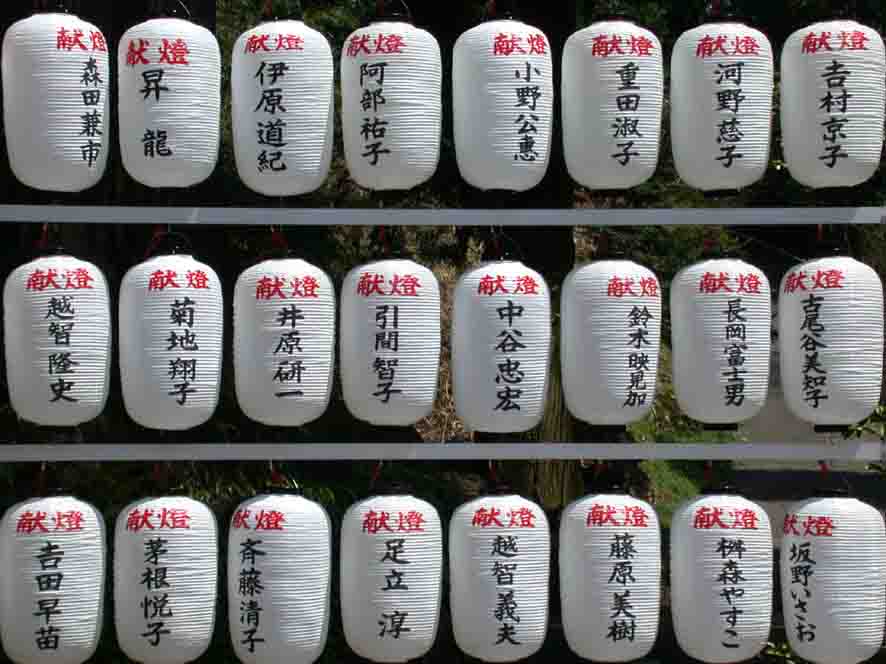 献燈
森田兼市
献燈
昇龍
献燈
伊原道紀
献燈
阿部祐子
献燈
小野公惠
献燈
重田淑子
献燈
河野慈子
献燈
𠮷村京子
献燈
越智隆史
献燈
菊地翔子
献燈
井原研一
献燈
引間智子
献燈
中谷忠宏
献燈
鈴木映見加
献燈
長岡富士男
献燈
𠮷尾谷美知子
献燈
𠮷田早苗
献燈
茅根悦子
献燈
斉藤清子
献燈
足立淳
献燈
越智義夫
献燈
藤原美樹
献燈
桝森やすこ
献燈
坂野いさお